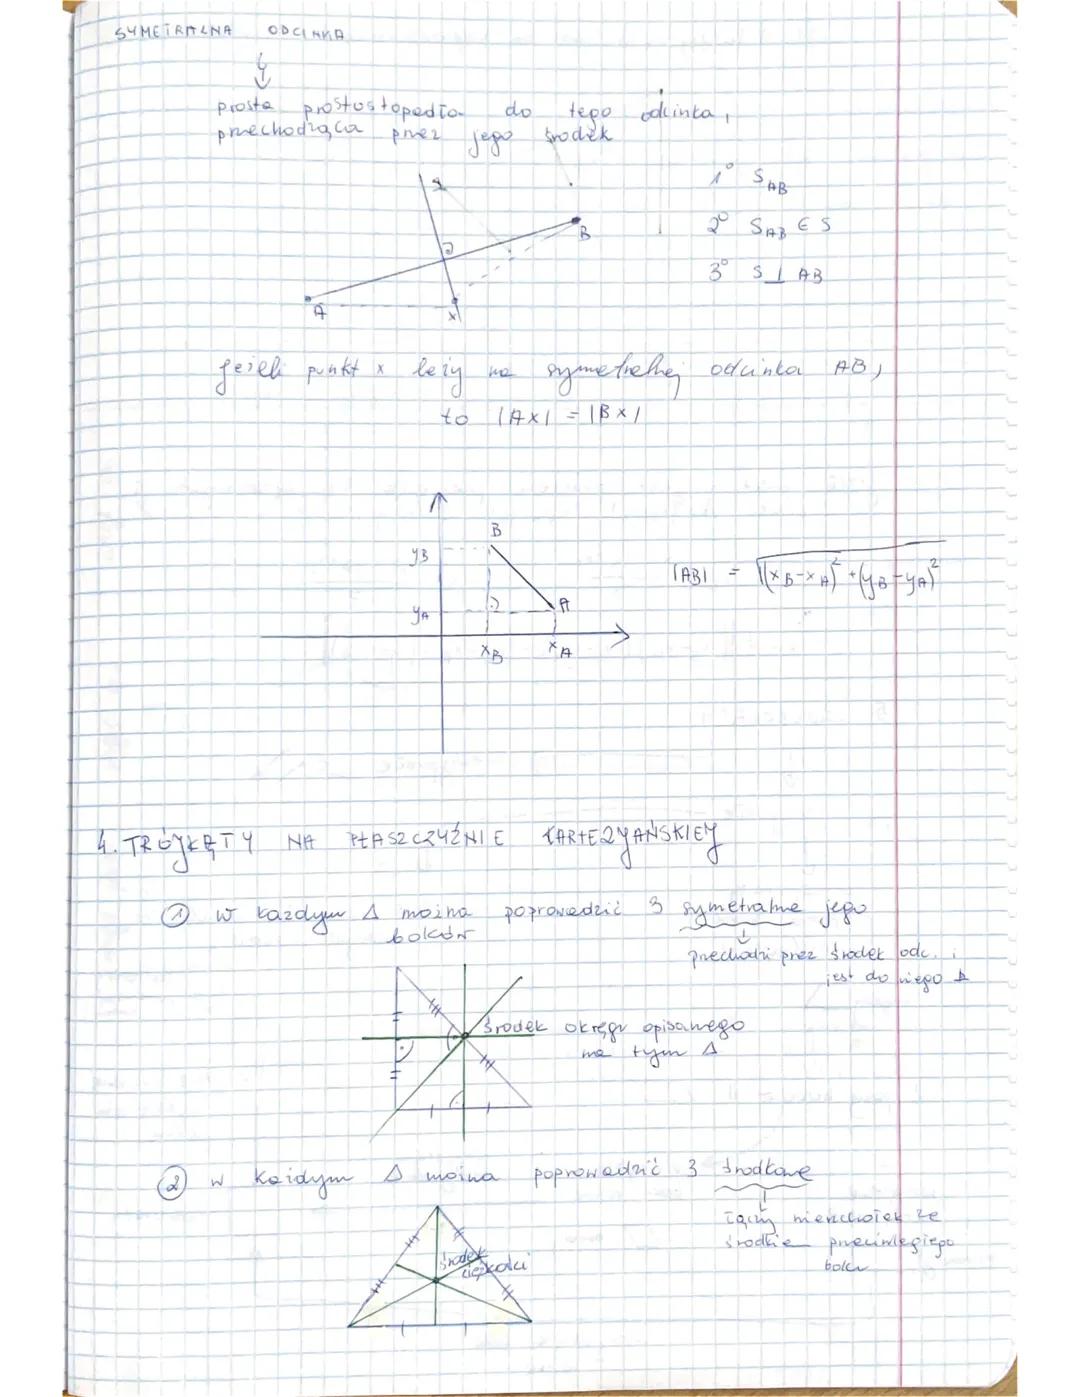 SYMETRALNA ODCINKA
prosta prostostopadła do tego odcinka,
przechodząca przez jego środek
1° S_AB
2° S_AB ∈ S
3° S ⊥ AB
B
A
x
jeżeli punkt x leży na symetralnej odcinka AB,
to |AX| = |BX|
B
yB
|AB| = √((xB-xA)² + (yB-yA)²)
yA
A
xB xA
4. TRÓJKĄTY NA PŁASZCZYŹNIE KARTEZYAŃSKIEJ
① w każdym Δ można poprowadzić 3 symetralne jego
boków
przechodzi przez środek odc. i
jest do niego ⊥
środek okręgu opisanego
na tym Δ
② w każdym Δ można poprowadzić 3 środkowe
łączy wierzchołek ze
środkiem przeciwległego
boku
środek
ciężkości